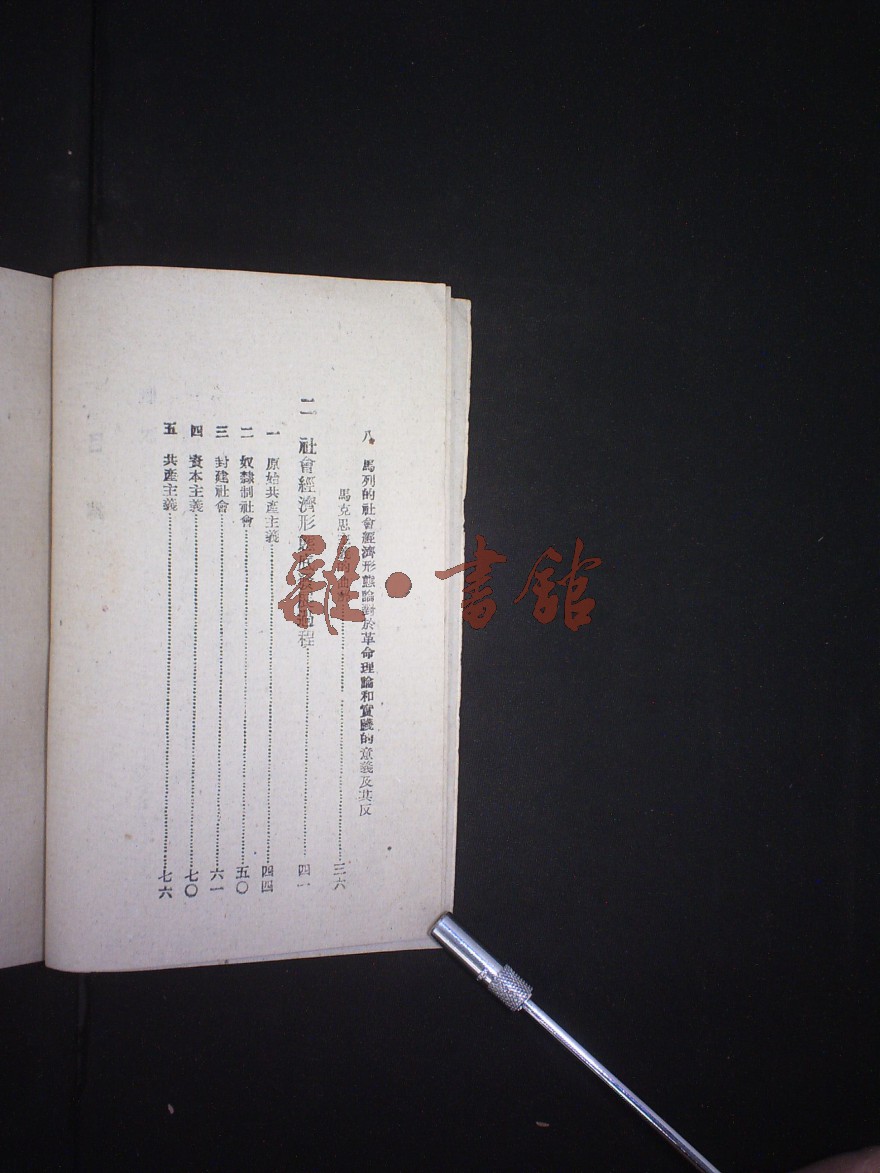 八 馬列的社會經濟形態論對於革命理論和實踐的意義及其反
馬克思主義的曲解……三六
二 社會經濟形態發展的過程……四一
一 原始共產主義……四四
二 奴隸制社會……五〇
三 封建社會……六一
四 資本主義……七〇
五 共產主義……七六
雜·書館